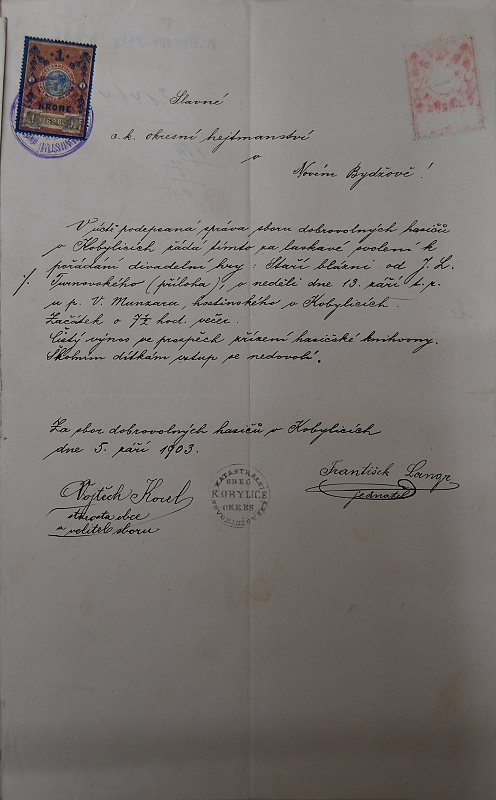 1
KRONE
1898
Slavné
c. k. okresní hejtmanství
v
Novém Bydžově!
V úctě podepsaná správa sboru dobrovolných hasičů
v Kobylicích žádá tímto za laskavé svolení k
pořádání divadelní hry: Staří blázni od J. L.
Turnovského (příloha), v neděli dne 13. září t. r.
u p. V. Munzara, hostinského v Kobylicích.
Začátek o 7½ hod. večer.
Čistý výnos ve prospěch zřízení hasičské knihovny.
Školním dítkám vstup se nedovolí.
Za sbor dobrovolných hasičů v Kobylicích
dne 5. září 1903.
František Lange
jednatel
Vojtěch Koul
starosta obce
a velitel sboru
KATASTRÁLNÍ
OBEC
KOBYLICE
OKRES
NOVOBYDŽOVSKÝ